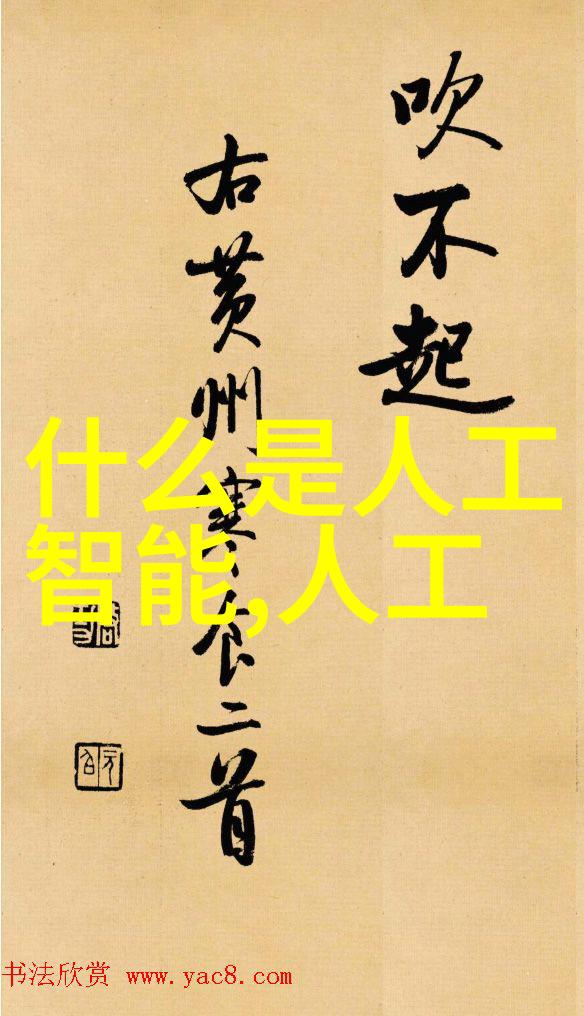 吹不起
右黄州寒食二首
什么是人工
智能,人工
书法欣赏 www.yac8.com